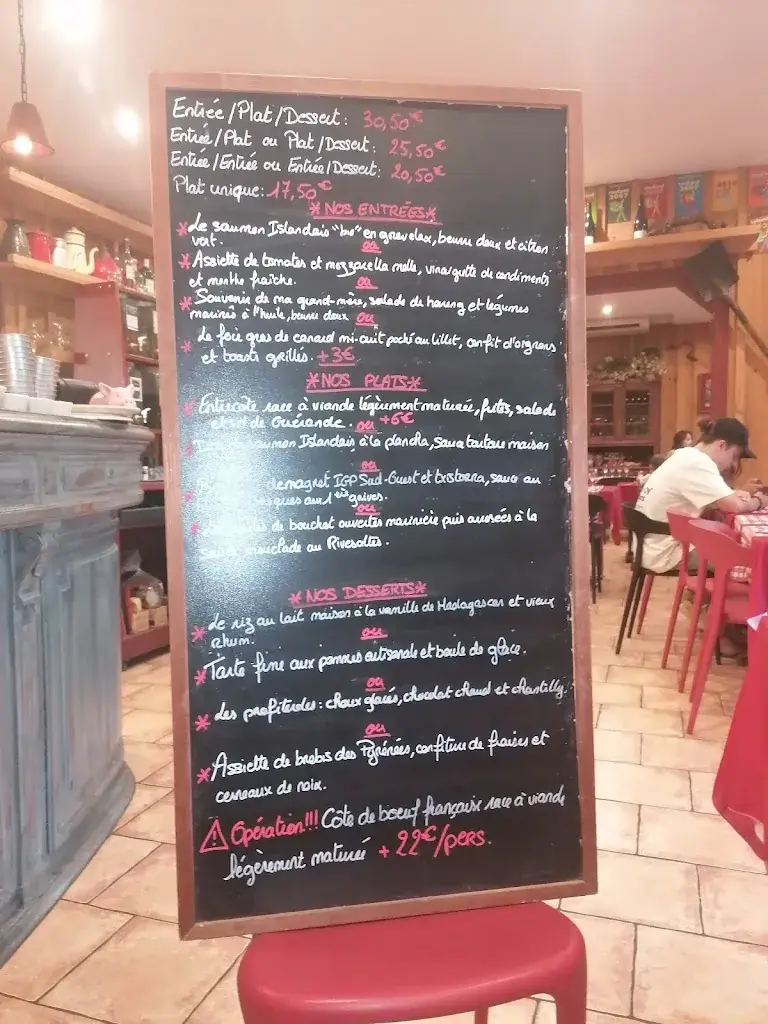 Entrée/Plat/Dessert: 30,50€
Entrée/Plat ou Plat/Dessert: 25,50€
Entrée/Entrée ou Entrée/Dessert: 20,50€
Plat unique: 17,50€
*NOS ENTRÉES*
*Le saumon Islandais "bio" en gravelax, beurre doux et citron
vert.
ou
*Assiette de tomates et mozzarella melle, vinaigrette de condiments
et menthe fraîche.
ou
*Souvenir de ma grand-mère, salade de hareng et légumes
marinés à l'huile, beurre doux
ou
*Le foie gras de canard mi-cuit poché au Lillet, confit d'oignons
et toasts grillés. +3€
*NOS PLATS*
*Entrecôte race à viande légèrement maturée, frites, salade
et sel de Guérande. +6€
ou
saumon Islandais à la plancha, sauce tartare maison
ou
de magret IGP Sud-Ouest et txistorra, sauce au
basques aux
ou
de bouchot ouvertes marinière puis arrosées à la
sauce mouclade au Rivesaltes.
*NOS DESSERTS*
*Le riz au lait maison à la vanille de Madagascar et vieux
rhum.
ou
*Tarte fine aux pommes artisanale et boule de glace.
ou
*Les profiteroles: choux glacés, chocolat chaud et chantilly.
ou
*Assiette de brebis des Pyrénées, confiture de fraises et
cerneaux de noix.
Opération!!! Côte de boeuf française race à viande
légèrement maturée +22€/pers.